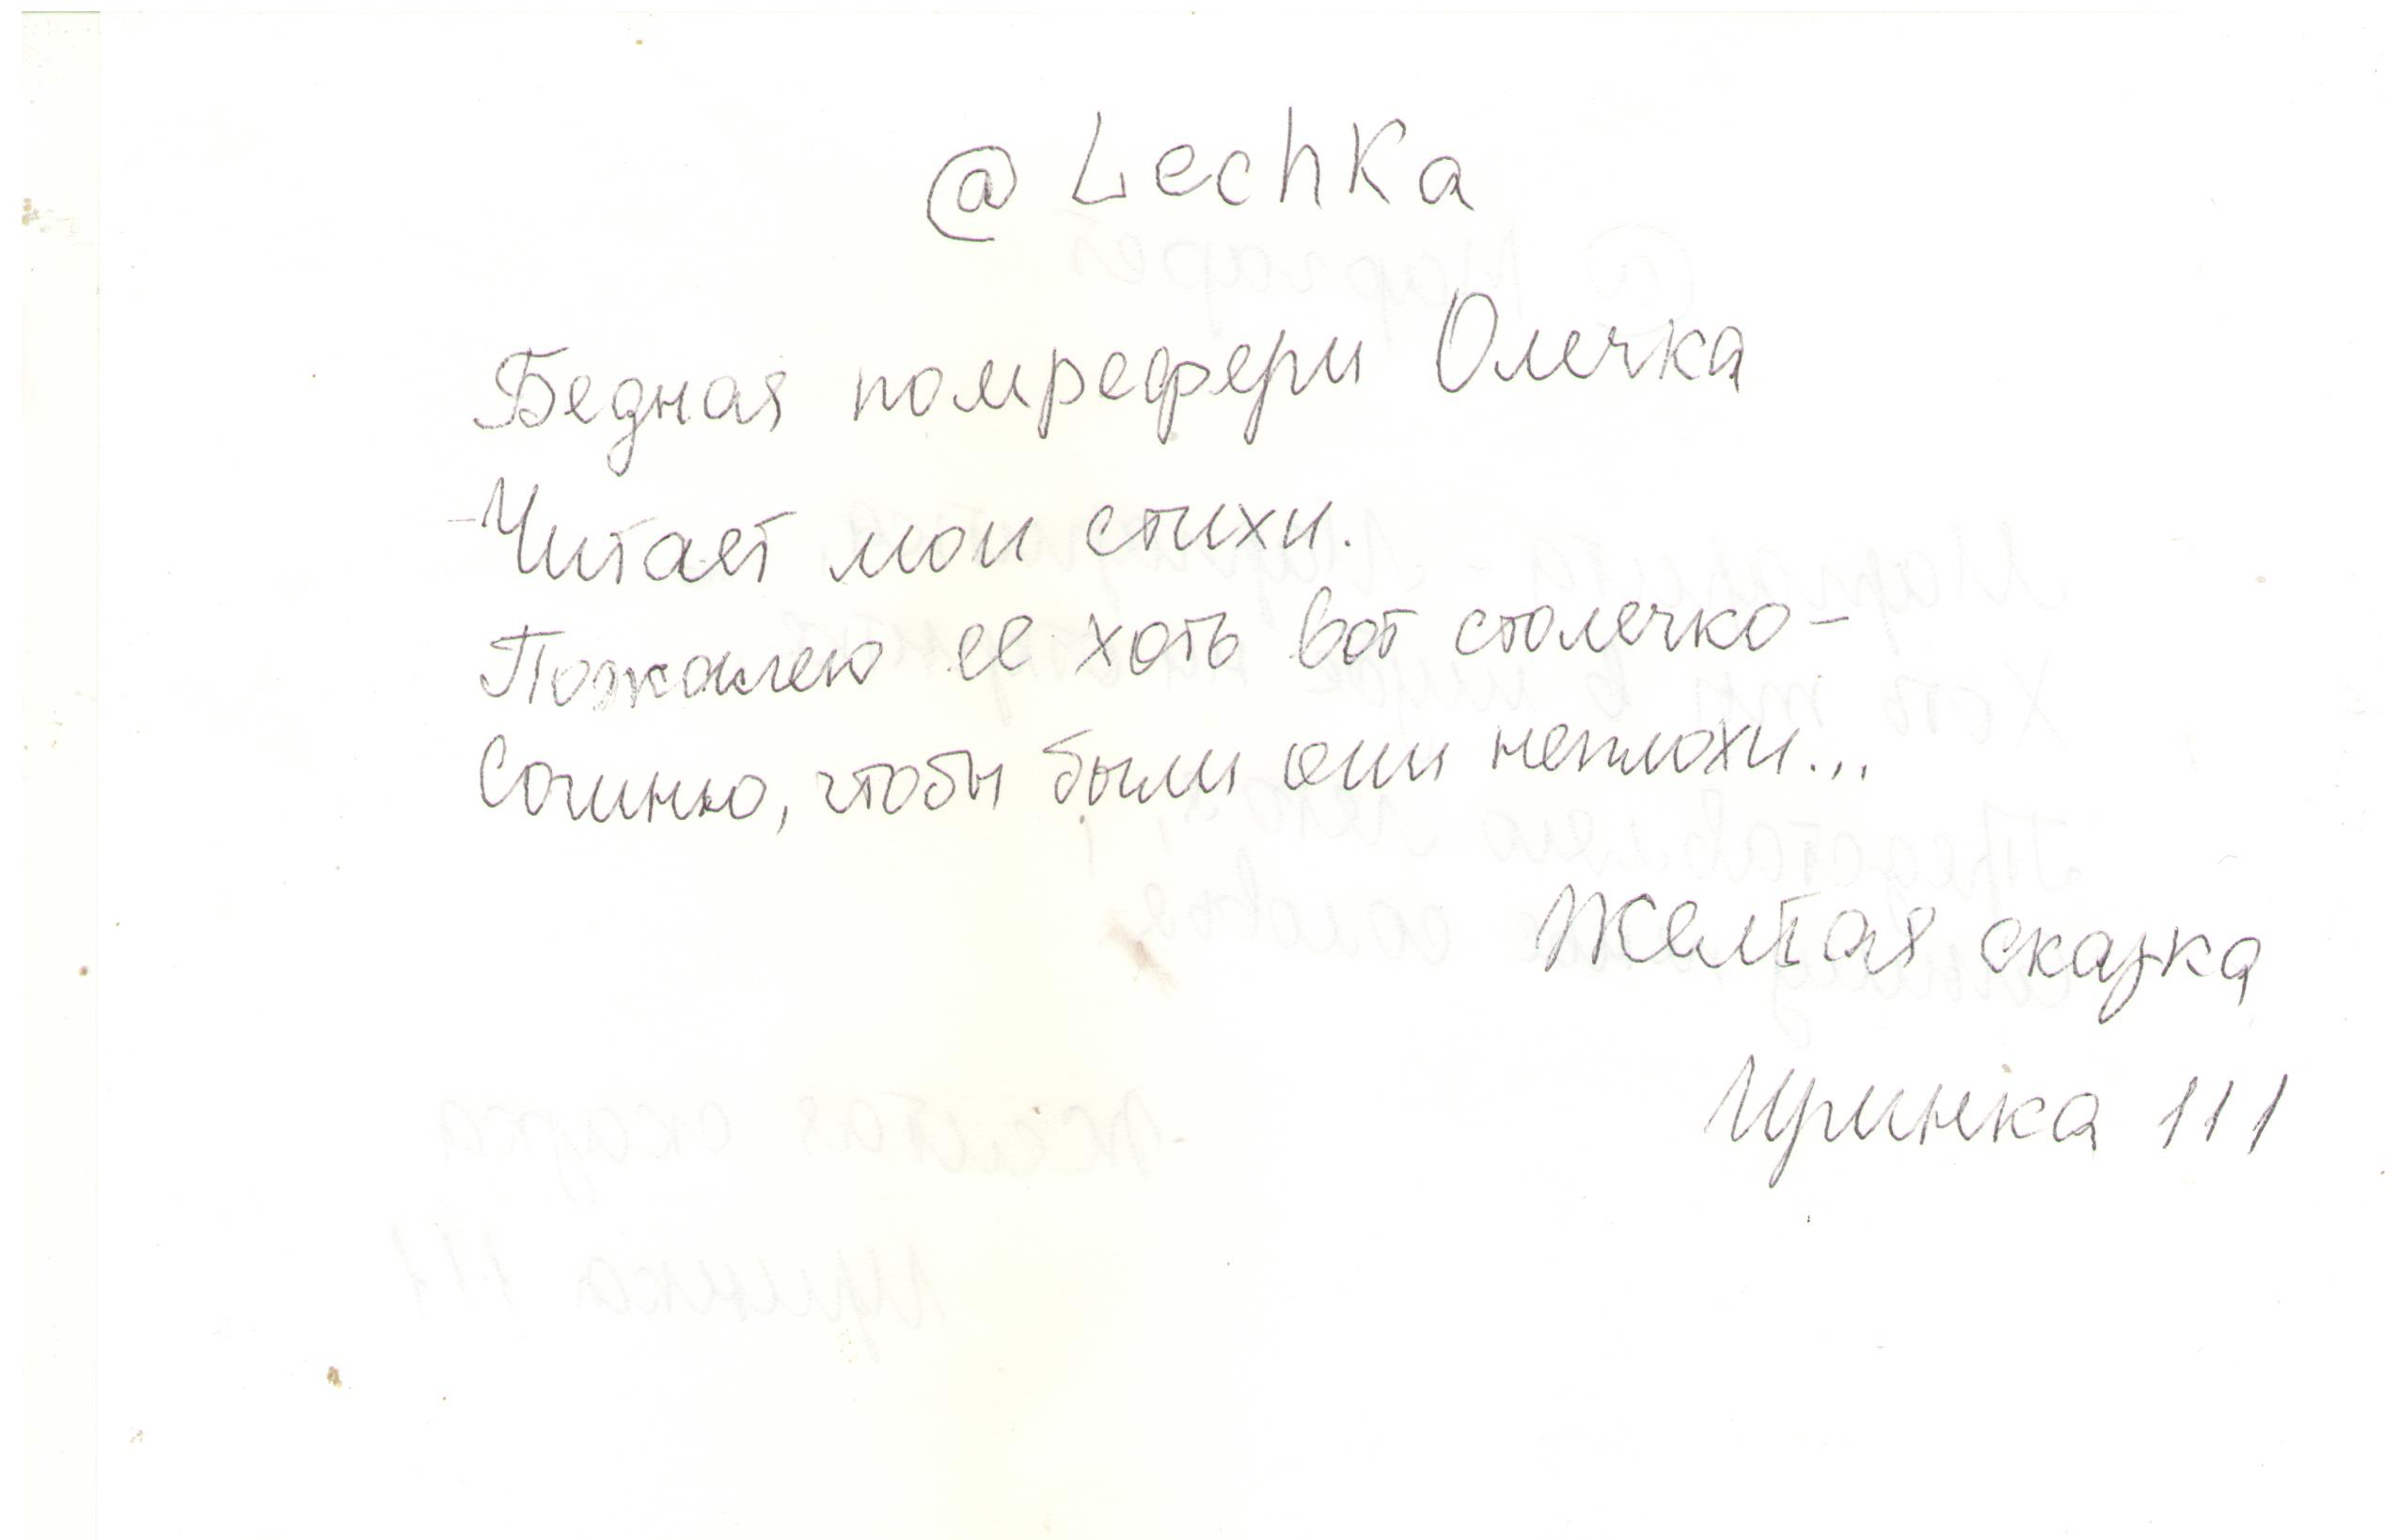 @ LechKa
Бедная помрефери Олечка
Читает мои стихи.
Пожалею ее хоть вот столечко -
Сочиню, чтобы были они неплохи...
Желтая сказка
Иринка 111